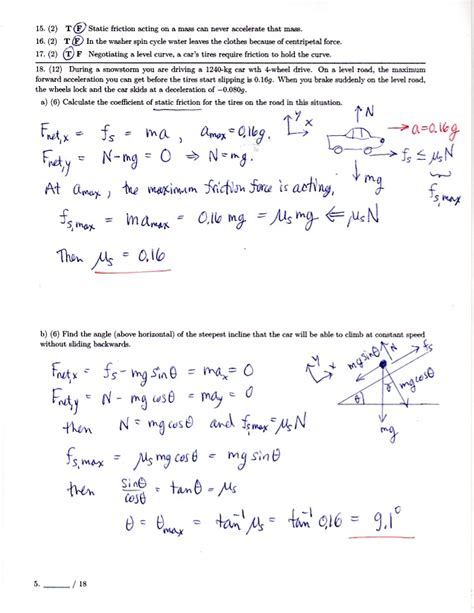 15. (2) T (F) Static friction acting on a mass can never accelerate that mass.
16. (2) T (F) In the washer spin cycle water leaves the clothes because of centripetal force.
17. (2) (T) F Negotiating a level curve, a car's tires require friction to hold the curve.
18. (12) During a snowstorm you are driving a 1240-kg car wth 4-wheel drive. On a level road, the maximum
forward acceleration you can get before the tires start slipping is 0.16g. When you brake suddenly on the level road,
the wheels lock and the car skids at a deceleration of −0.080g.
a) (6) Calculate the coefficient of static friction for the tires on the road in this situation.
Fnet,x = fs = ma, amax = 0.16g. y x N a=0.16g
Fnet,y = N-mg = 0 ⇒ N=mg. fs ≤ μsN
mg
At amax, the maximum friction force is acting, fs,max
fs,max = mamax = 0.16 mg = μsmg ⇐ μsN
Then μs = 0.16
b) (6) Find the angle (above horizontal) of the steepest incline that the car will be able to climb at constant speed
without sliding backwards.
Fnet,x = fs - mg sinθ = max = 0 y x mg sinθ N fs
Fnet,y = N - mg cosθ = may = 0 θ mg cosθ
then N = mg cosθ and fs,max = μsN mg
fs,max = μs mg cosθ = mg sinθ
then sinθ/cosθ = tanθ = μs
θ = θmax = tan⁻¹ μs = tan⁻¹ 0.16 = 9.1°
5. ____ / 18